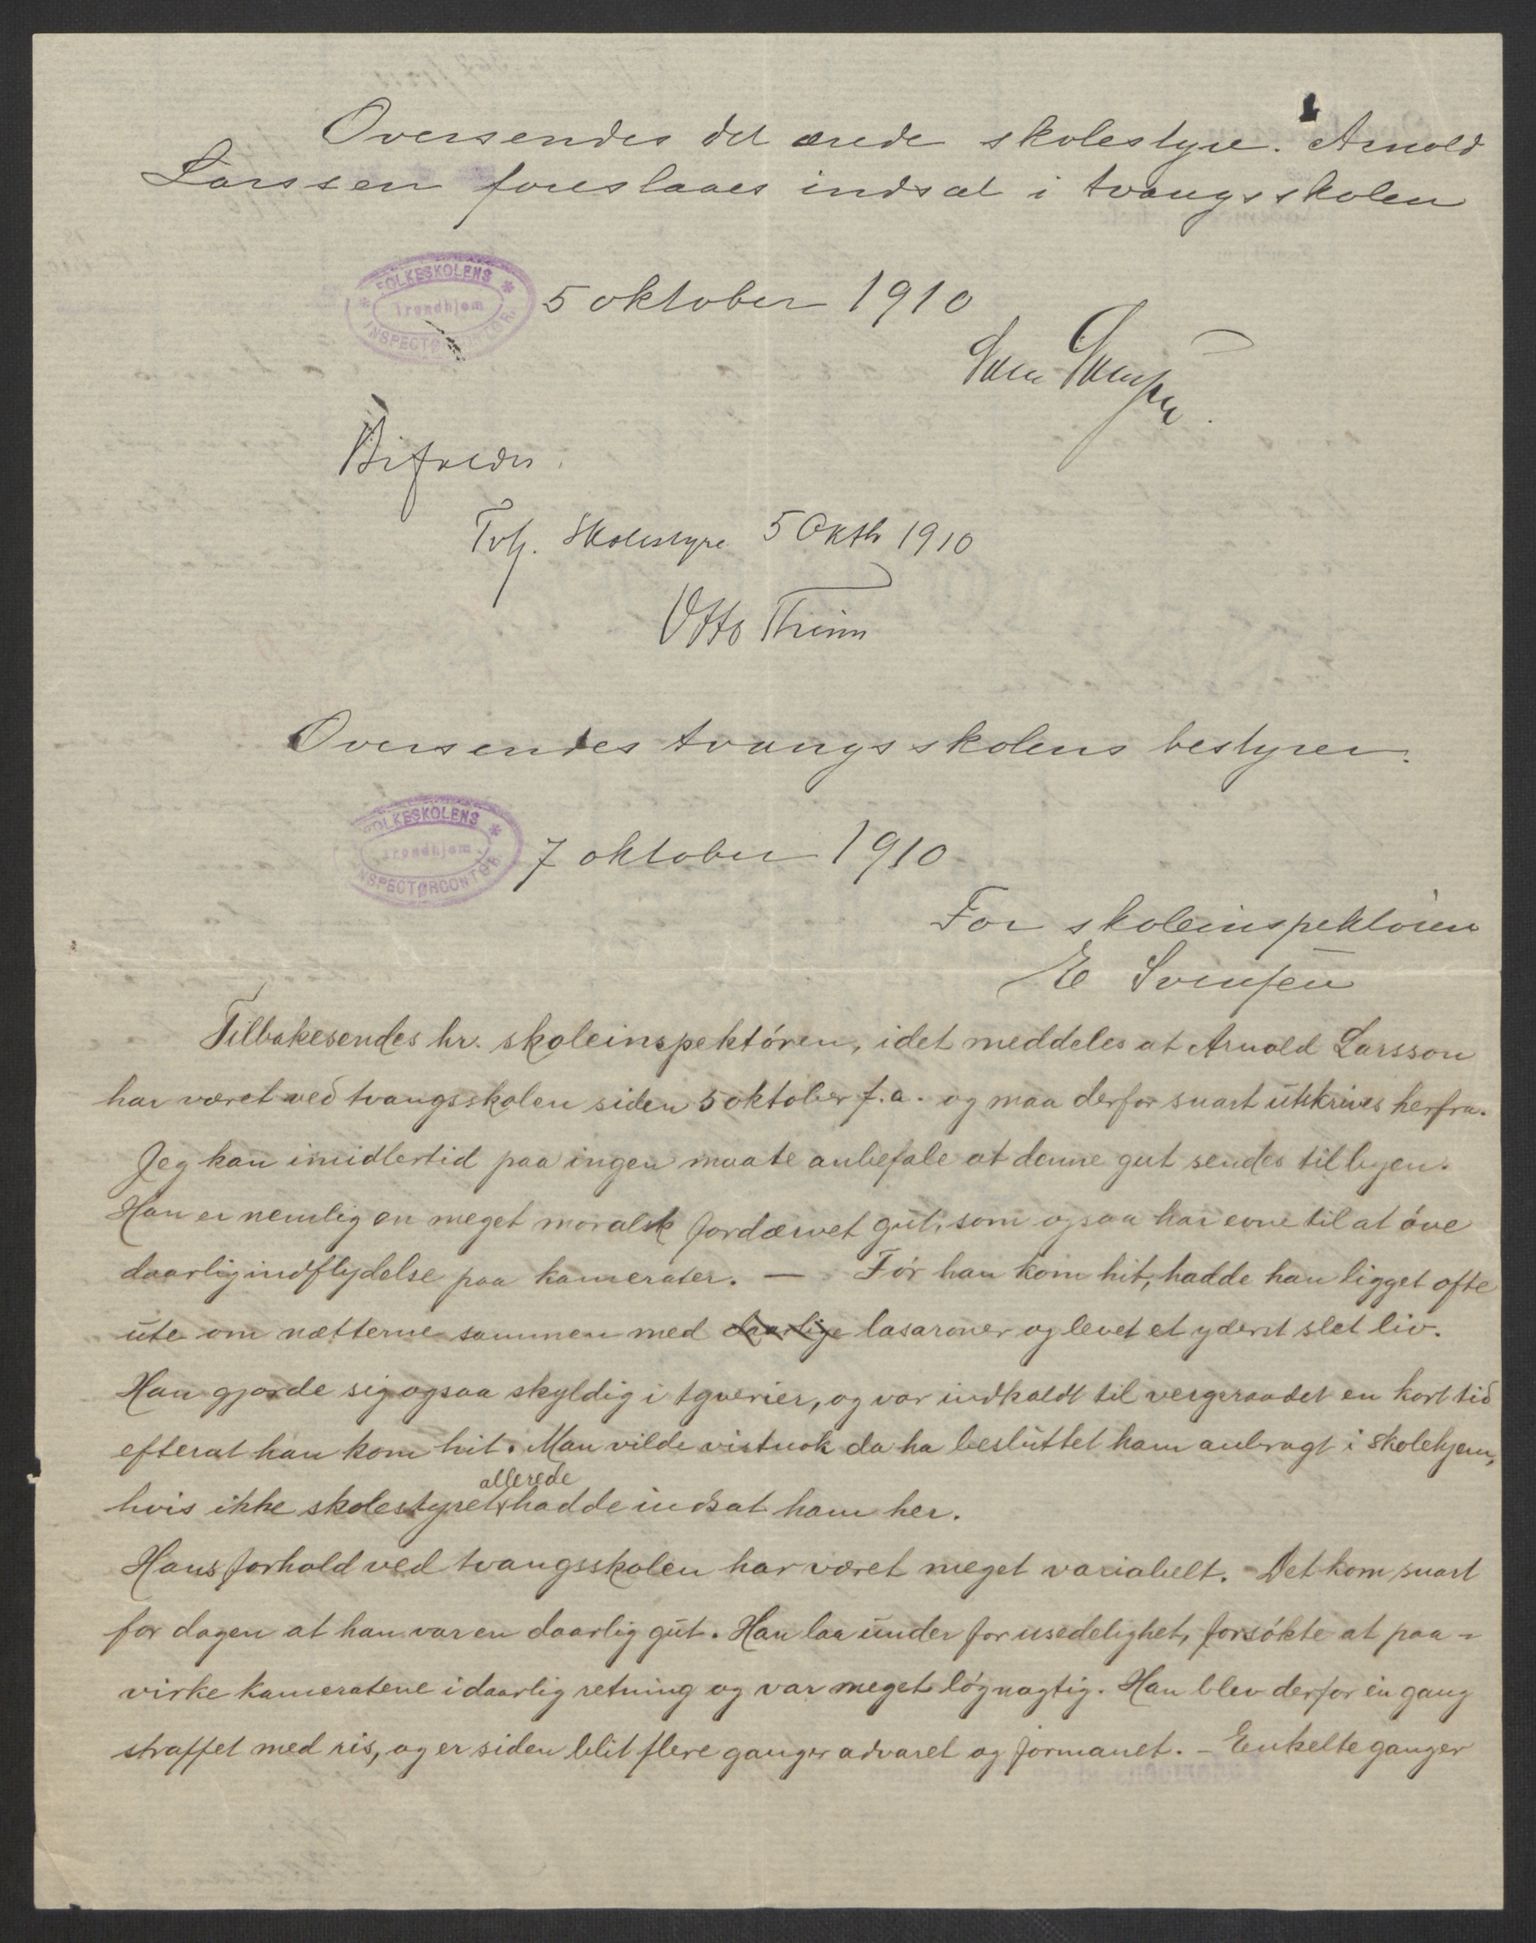 Oversendes det ærede skolestyre. Arnold
Larssen foreslaaes indsat i tvangsskolen
FOLKESKOLENS
Trondhjem
INSPECTØRCONTOR
5 oktober 1910
Bifaldes.
Tvhj. Skolestyre 5 Oktbr 1910
Otto
Oversendes tvangsskolens bestyrer.
FOLKESKOLENS
Trondhjem
INSPECTØRCONTOR
7 oktober 1910
For skoleinspektören
E Svensen
Tilbakesendes hr. skoleinspektóren, idet meddeles at Arnold Larsson
har været ved tvangsskolen siden 5 oktober f.a. og maa derfor snart utskrives herfra.
Jeg kan imidlertid paa ingen maate anbefale at denne gut sendes til byen.
Han er nemlig en meget moralsk fordærvet gut, som ogsaa har evne til at óve
daarlig indflydelse paa kamerater. — Fór han kom hit, hadde han ligget ofte
ute om nætterne sammen med daarlige lasaroner og levet et yderst slet liv.
Han gjorde sig ogsaa skyldig i tyverier, og var indkaldt til vergeraadet en kort tid
efterat han kom hit. Man vilde vistnok da ha besluttet ham anbragt i skolehjem,
hvis ikke skolestyret allerede hadde indsat ham her.
Hans forhold ved tvangsskolen har været meget variabelt. - Det kom snart
for dagen at han var en daarlig gut. Han laa under for usedelighet, forsókte at paa-
virke kameratene i daarlig retning og var meget løgnagtig. Han blev derfor én gang
straffet med ris, og er siden blit flere ganger advaret og formanet. - Enkelte ganger